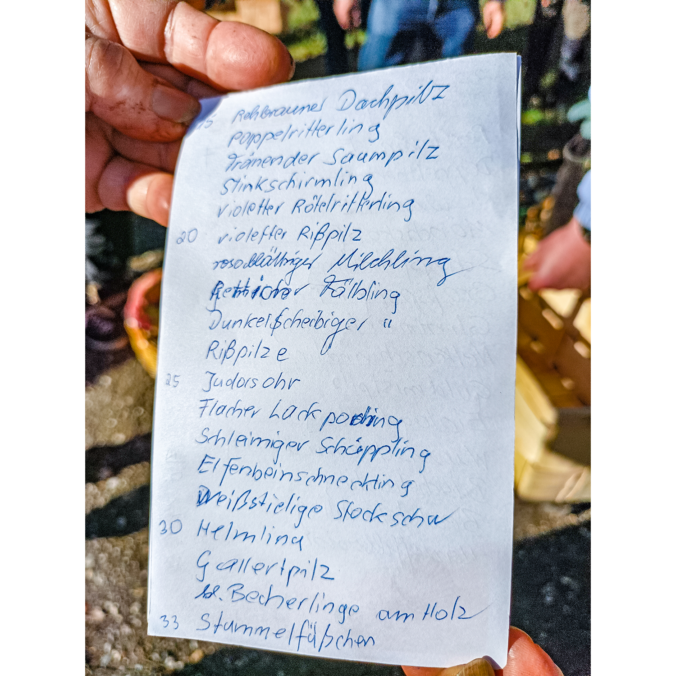 15 Rehbrauner Dachpilz
Pappelritterling
Tränender Saumpilz
Stinkschirmling
violetter Rötelritterling
20 violetter Rißpilz
rosablättriger Milchling
Fälbling
Dunkelscheibiger "
Rißpilze
25 Judasohr
Flacher Lackporling
Schleimiger Schüppling
Elfenbeinschneckling
Weißstielige Stockschw
30 Helmling
Gallertpilz
kl. Becherlinge am Holz
33 Stummelfüßchen